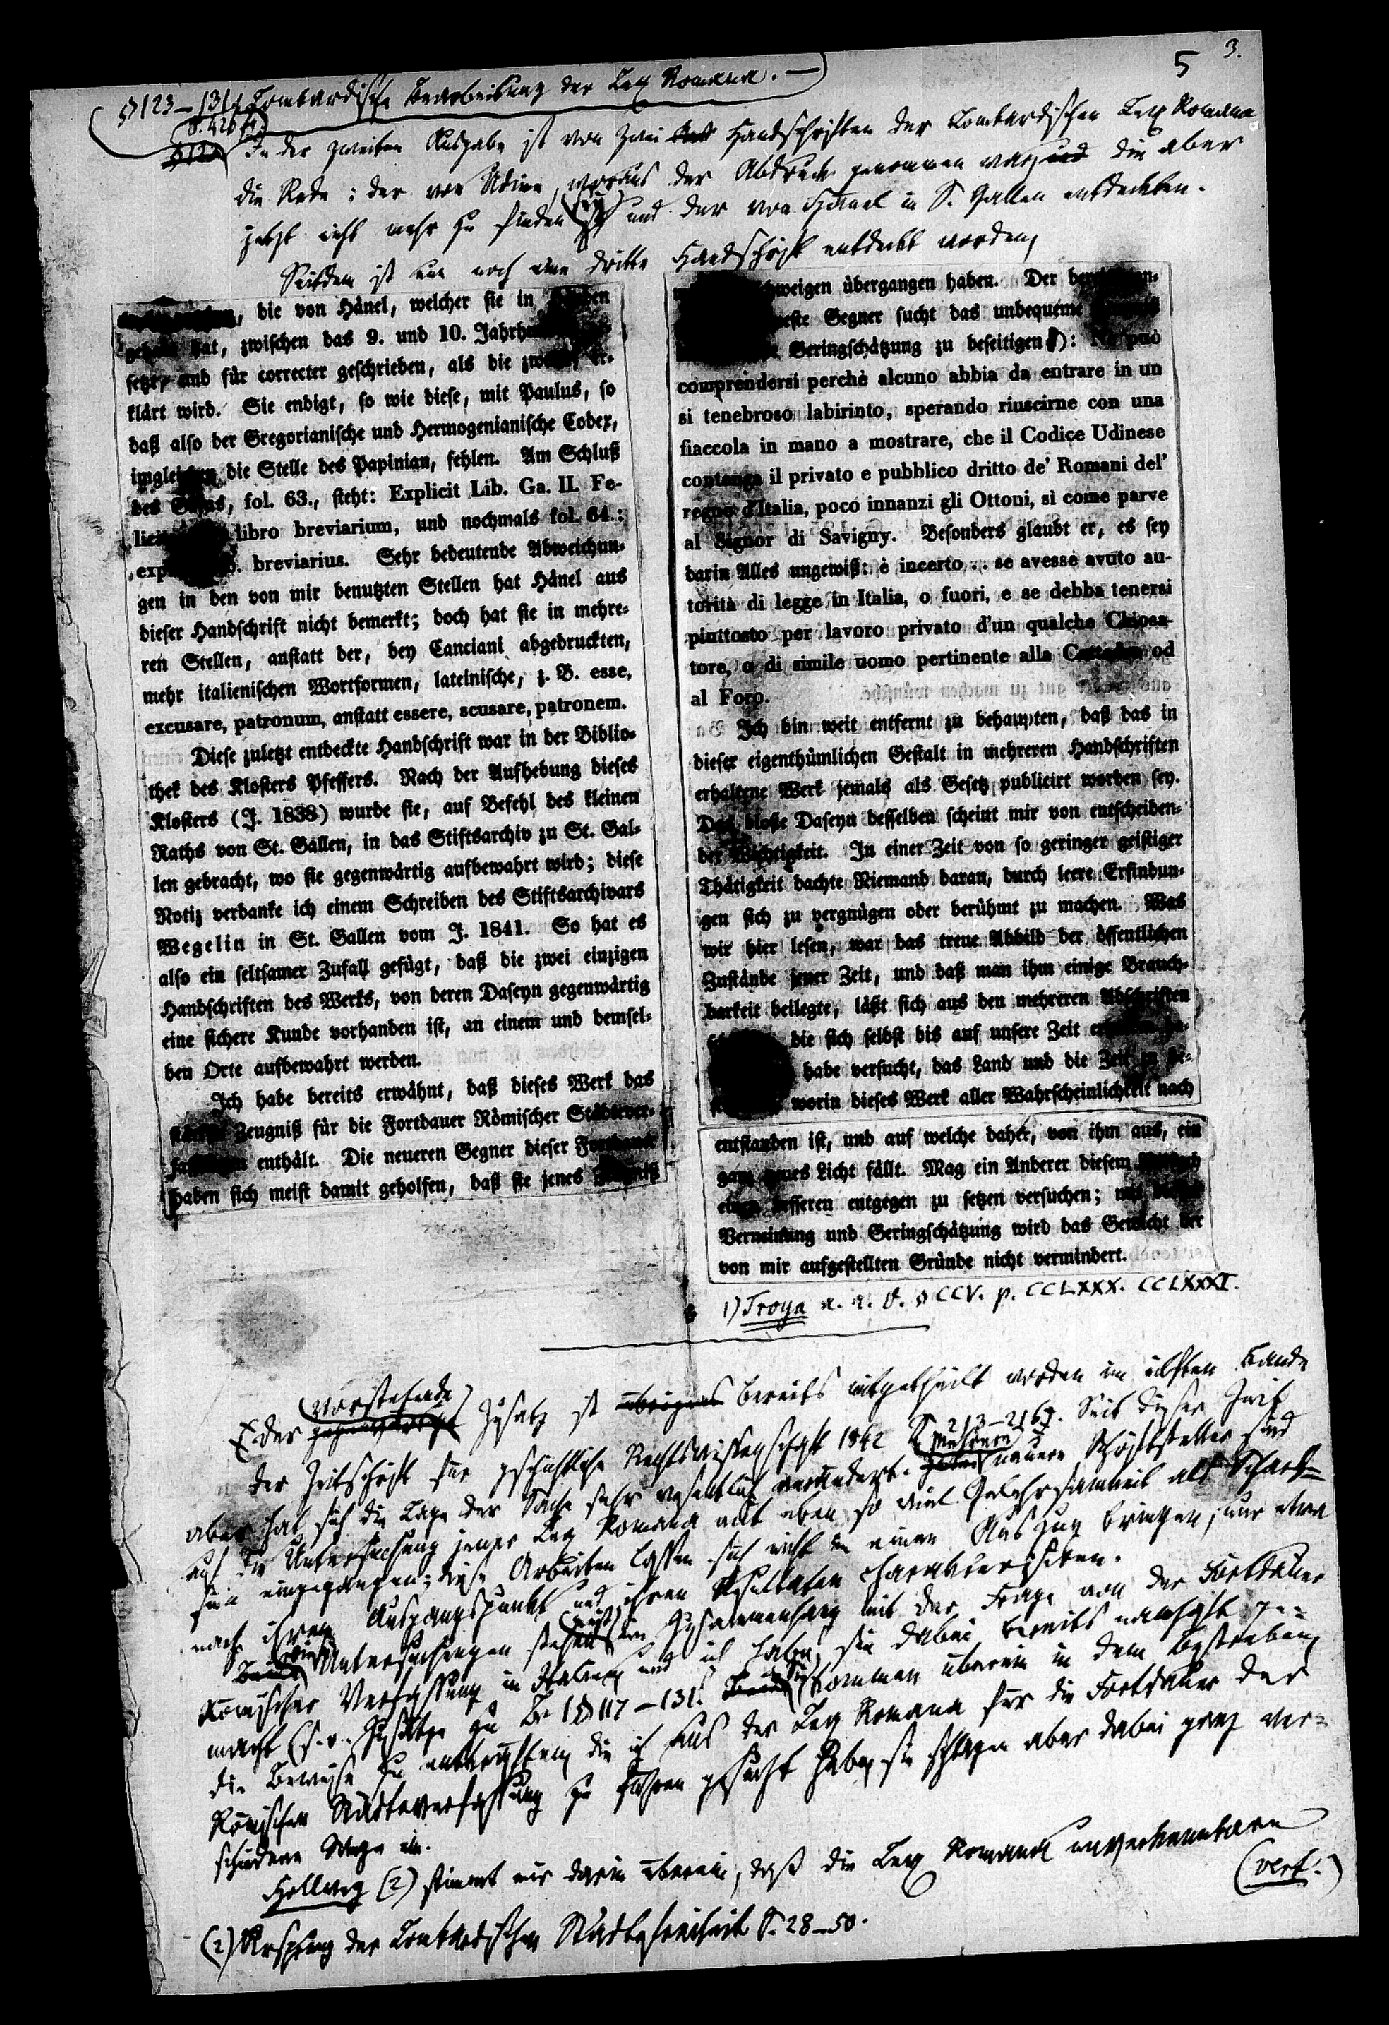 5 3.
§ 123–131. Lombardische Bearbeitung der Lex Romana. —
S. 426 ff.
In der zweiten Ausgabe ist von zwei Handschriften der Lombardischen Lex Romana
die Rede: der von Udine, woraus der Abdruck genommen war, und die aber
jetzt nicht mehr zu finden ist, und der von Hänel in S. Gallen entdeckten.
Seitdem ist nun noch eine dritte Handschrift entdeckt worden,
die von Hänel, welcher sie in
hat, zwischen das 9. und 10.
setzt, und für correcter geschrieben, als die
klärt wird. Sie endigt, so wie diese, mit Paulus, so
daß also der Gregorianische und Hermogenianische Codex,
imgleichen die Stelle des Papinian, fehlen. Am Schluß
des Gajus, fol. 63., steht: Explicit Lib. Ga. II. Fe-
libro breviarium, und nochmals fol. 64.:
breviarius. Sehr bedeutende Abweichun-
gen in den von mir benutzten Stellen hat Hänel aus
dieser Handschrift nicht bemerkt; doch hat sie in mehre-
ren Stellen, anstatt der, bey Canciani abgedruckten,
mehr italienischen Wortformen, lateinische, z. B. esse,
excusare, patronum, anstatt essere, scusare, patronem.
Diese zuletzt entdeckte Handschrift war in der Biblio-
thek des Klosters Pfeffers. Nach der Aufhebung dieses
Klosters (J. 1838) wurde sie, auf Befehl des kleinen
Raths von St. Gallen, in das Stiftsarchiv zu St. Gal-
len gebracht, wo sie gegenwärtig aufbewahrt wird; diese
Notiz verdanke ich einem Schreiben des Stiftsarchivars
Wegelin in St. Gallen vom J. 1841. So hat es
also ein seltsamer Zufall gefügt, daß die zwei einzigen
Handschriften des Werks, von deren Daseyn gegenwärtig
eine sichere Kunde vorhanden ist, an einem und demsel-
ben Orte aufbewahrt werden.
Ich habe bereits erwähnt, daß dieses Werk das
Zeugniß für die Fortdauer Römischer Städtever-
enthält. Die neueren Gegner dieser Fortdauer
haben sich meist damit geholfen, daß sie jenes Zeugniß
schweigen übergangen haben. Der
neste Gegner sucht das unbequeme
Geringschätzung zu beseitigen 1): Nè può
comprendersi perchè alcuno abbia da entrare in un
si tenebroso labirinto, sperando riuscirne con una
fiaccola in mano a mostrare, che il Codice Udinese
contenga il privato e pubblico dritto de' Romani del'
regno d'Italia, poco innanzi gli Ottoni, sì come parve
al Signor di Savigny. Besonders glaubt er, es sey
darin Alles ungewiß: è incerto .. se avesse avuto au-
torità di legge in Italia, o fuori, e se debba tenersi
piuttosto per lavoro privato d'un qualche Chiosa-
tore, o di simile uomo pertinente alla od
al Foro.
Ich bin weit entfernt zu behaupten, daß das in
dieser eigenthümlichen Gestalt in mehreren Handschriften
erhaltene Werk jemals als Gesetz publicirt worden sey.
Das bloße Daseyn desselben scheint mir von entscheiden-
der Wichtigkeit. In einer Zeit von so geringer geistiger
Thätigkeit dachte Niemand daran, durch leere Erfindun-
gen sich zu vergnügen oder berühmt zu machen. Was
wir hier lesen, war das treue Abbild der öffentlichen
Zustände jener Zeit, und daß man ihm einige Brauch-
barkeit beilegte, läßt sich aus den mehreren Abschriften
die sich selbst bis auf unsere Zeit
habe versucht, das Land und die Zeit zu be-
worin dieses Werk aller Wahrscheinlichkeit nach
entstanden ist, und auf welche daher, von ihm aus, ein
ganz neues Licht fällt. Mag ein Anderer diesem
einen besseren entgegen zu setzen versuchen;
Verneinung und Geringschätzung wird das Gewicht der
von mir aufgestellten Gründe nicht vermindert.
1) Troya a. a. O. § CCV. p. CCLXXX. CCLXXXI.
Der vorstehende Zusatz ist bereits mitgetheilt worden im elften Bande
der Zeitschrift für geschichtliche Rechtswissenschaft 1842 S. 213–216. Seit dieser Zeit
aber hat sich die Lage der Sache sehr wesentlich verändert. Mehrere neuere Schriftsteller sind
auf die Untersuchung jener Lex Romana mit eben so viel Gelehrsamkeit als Scharf-
sinn eingegangen; diese Arbeiten lassen sich nicht in einen Auszug bringen, nur etwa
nach ihrem Ausgangspunkt und ihren Resultaten charakterisiren.
Untersuchungen stehen im Zusammenhang mit der Frage von der Fortdauer
Römischer Verfassung in Italien, und ich habe sie dabei bereits namhaft ge-
macht (s. o. Zusätze zu B. 1 § 117–131. kommen überein in dem Bestreben,
die Beweise zu entkräften, die ich aus der Lex Romana für die Fortdauer der
Römischen Städteverfassung zu führen gesucht habe, sie schlagen aber dabei ganz ver-
schiedene Wege ein.
Hollweg (2) stimmt mir darin überein, daß die Lex Romana unverkennbare
(vert.)
(2) Ursprung der Lombardischen Städtefreiheit S. 28–50.